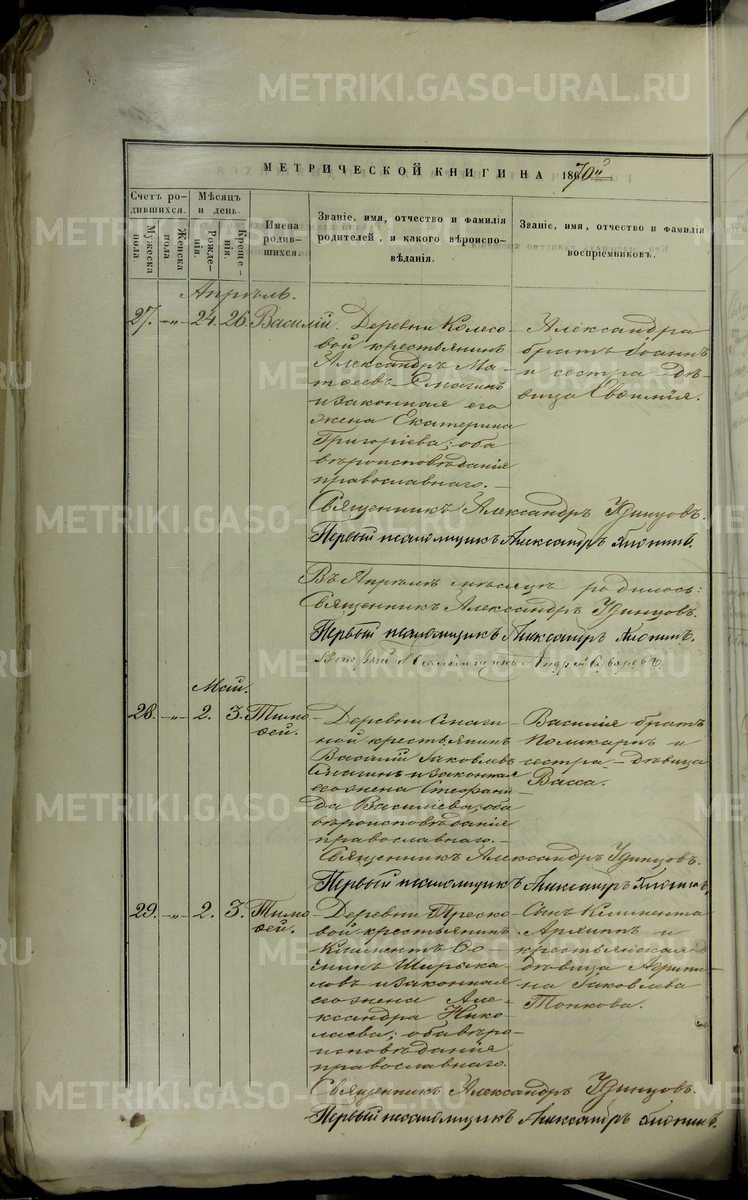 МЕТРИЧЕСКОЙ КНИГИ НА 1870й
Счетъ родившихся.
Мужеска пола.
Женска пола.
Мѣсяцъ и день.
Рожденія.
Крещенія.
Имена родившихся.
Званіе, имя, отчество и фамилія
родителей, и какого вѣроиспо-
вѣданія.
Званіе, имя, отчество и фамилія
воспріемниковъ.
Апрѣль.
27. -„- 24. 26. Василій.
Деревни Колесо-
вой крестьянинъ
Александръ Ма-
тѳеевъ
и законная его
жена Екатерина
Григоріева; оба
вѣроисповѣданія
православнаго.-
Александра
братъ Іоаннъ
и сестра дѣ-
вица Евѳимія.
Священникъ Александръ Удинцовъ.
Первый псаломщикъ Александръ
Въ Апрѣлѣ мѣсяцѣ родилось:
Священникъ Александръ Удинцовъ.
Первый псаломщикъ Александръ
Май.
28. -„- 2. 3. Тимо-
ѳей.
Деревни
ной крестьянинъ
Василій Іаковлевъ
и законная
его жена
Василіева, оба
вѣроисповѣданія
православнаго.-
Василія братъ
Поликарпъ и
сестра - дѣвица
Васса.
Священникъ Александръ Удинцовъ.
Первый псаломщикъ Александръ
29. -„- 2. 3. Тимо-
ѳей.
Деревни
вой крестьянинъ
Климентъ
и законная
его жена Але-
ксандра Нико-
лаева; оба вѣро-
исповѣданія
православнаго.
Сынъ Климента
и
крестьянская
дѣвица Агрипи-
на Іаковлева
Тонкова.
Священникъ Александръ Удинцовъ.
Первый псаломщикъ Александръ
METRIKI.GASO-URAL.RU